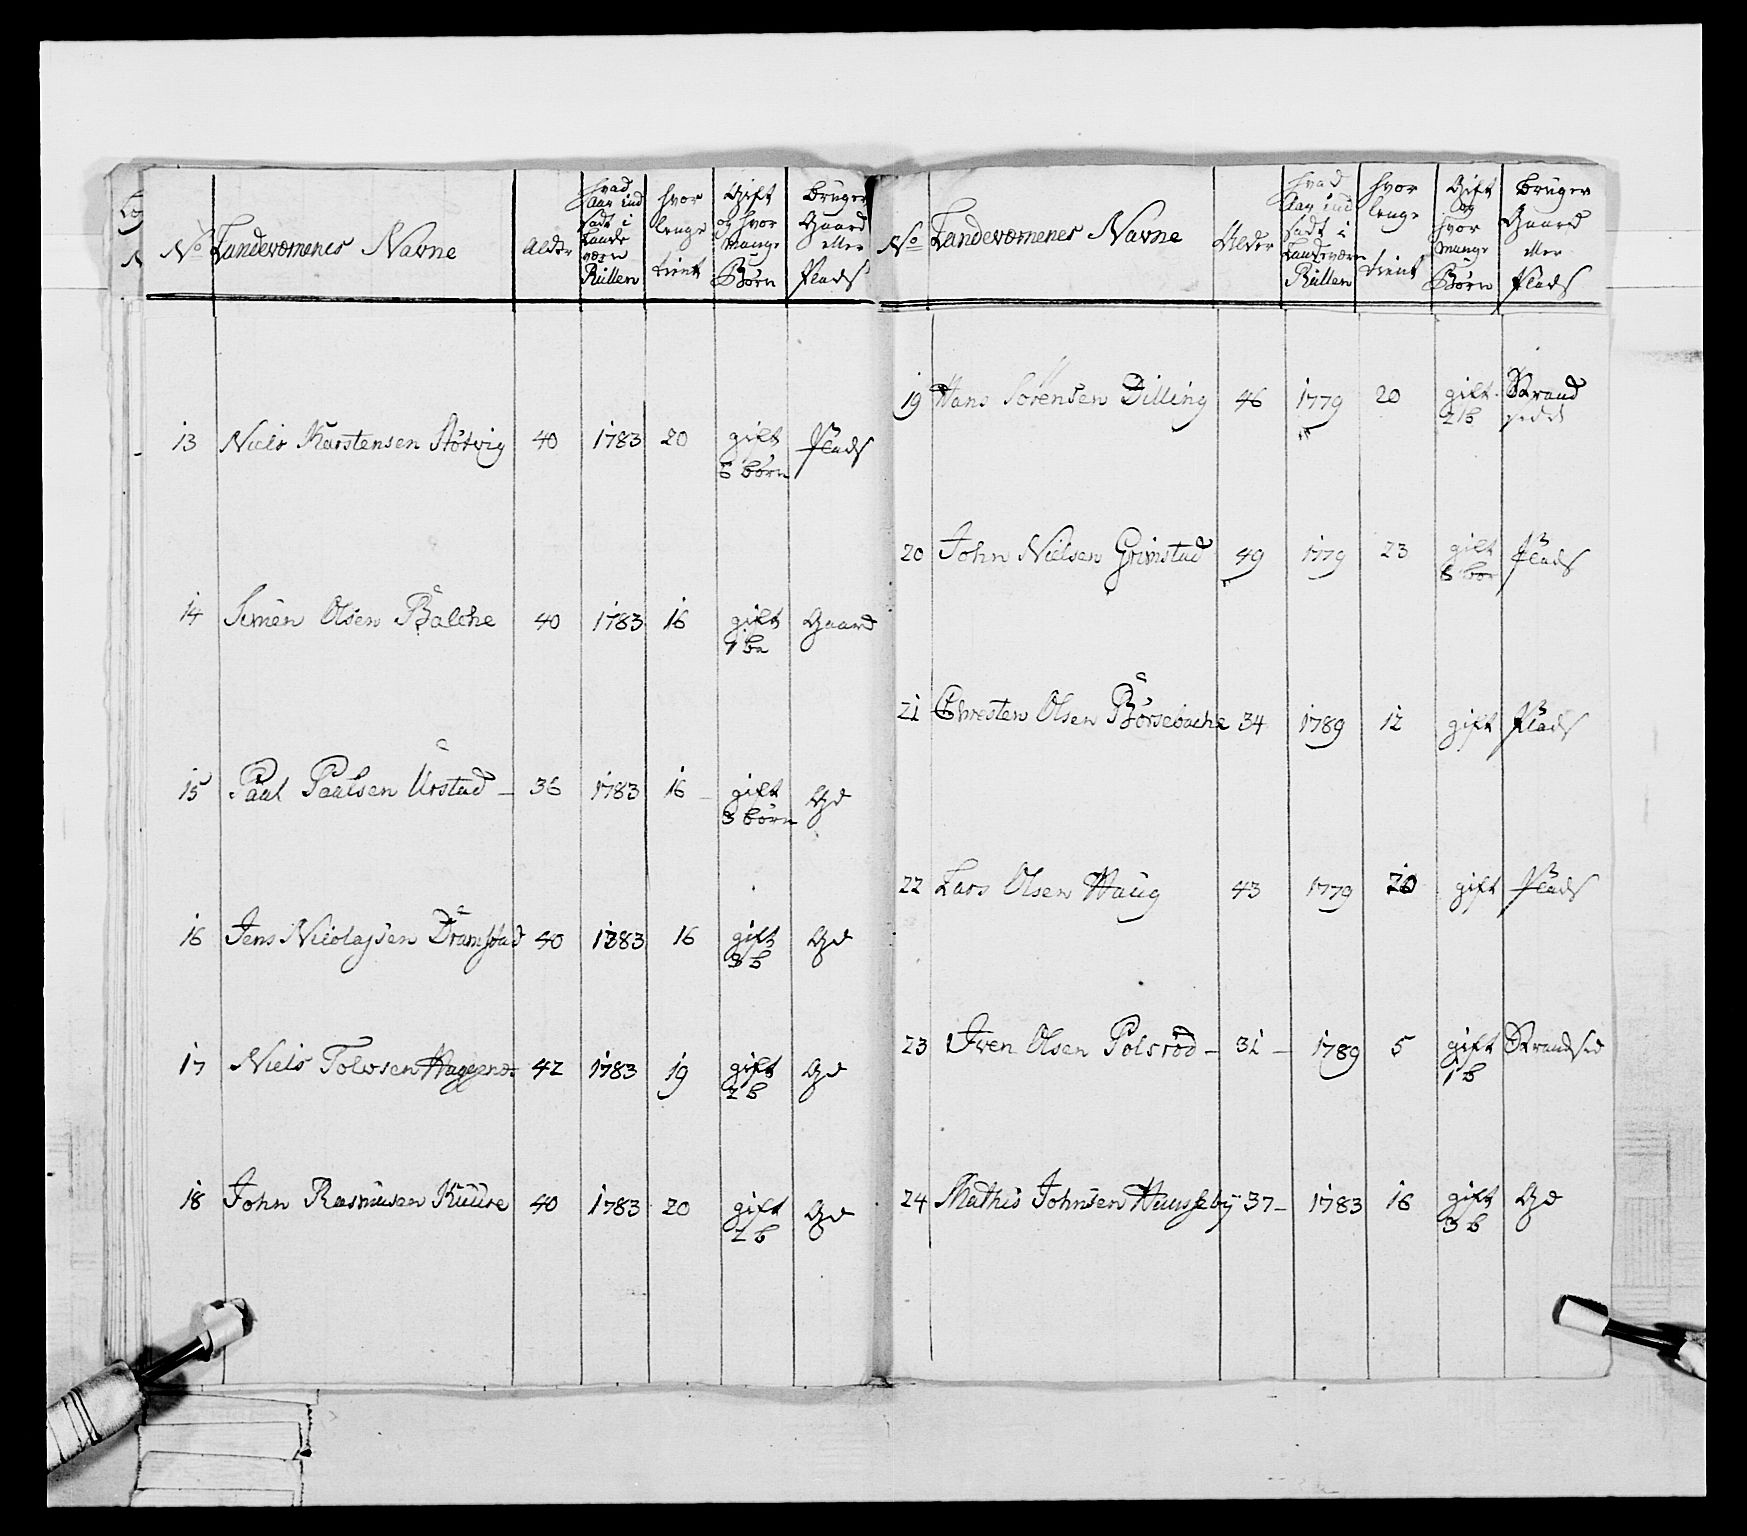 No Landeværnenes Navne | Alder | hvad Aar ind sadt i Landeværn Rullen | hvor lenge tient | Gift og hvor mange Børn | bruger Gaard eller Plads
13 Niels Karstensen Støtvig 40 1783 20 gift 5 børn Plads
14 Simen Olsen Balche 40 1783 16 gift 1 bn Gaard
15 Paul Paalsen Urstad – 36 1783 16 – gift 3 børn Gd
16 Jens Nicolajsen Dramstad 40 1783 16 gift 3 b Gd
17 Niels Tolvsen 42 1783 19 gift 2 b Gd
18 John Rasmusen Kuure 40 1783 20 gift 2 b Gd
No Landeværnenes Navne | Alder | hvad Aar ind sadt i Landeværn Rullen | hvor lenge tient | Gift og hvor mange Børn | bruger Gaard eller Plads
19 Hans Sørensen Dilling 46 1779 20 gift 2 b Strand sidd
20 John Nielsen Grimstad 49 1779 23 gift 5 bør Plads
21 Chresten Olsen Børsebache 34 1789 12 gift Plads
22 Lars Olsen Haug 43 1779 20 gift Plads
23 Iven Olsen Polsrød – 31 – 1789 5 gift 1 b Strandsid
24 Mathis Johnsen Huuseby 37 – 1783 16 gift 3 b Gd